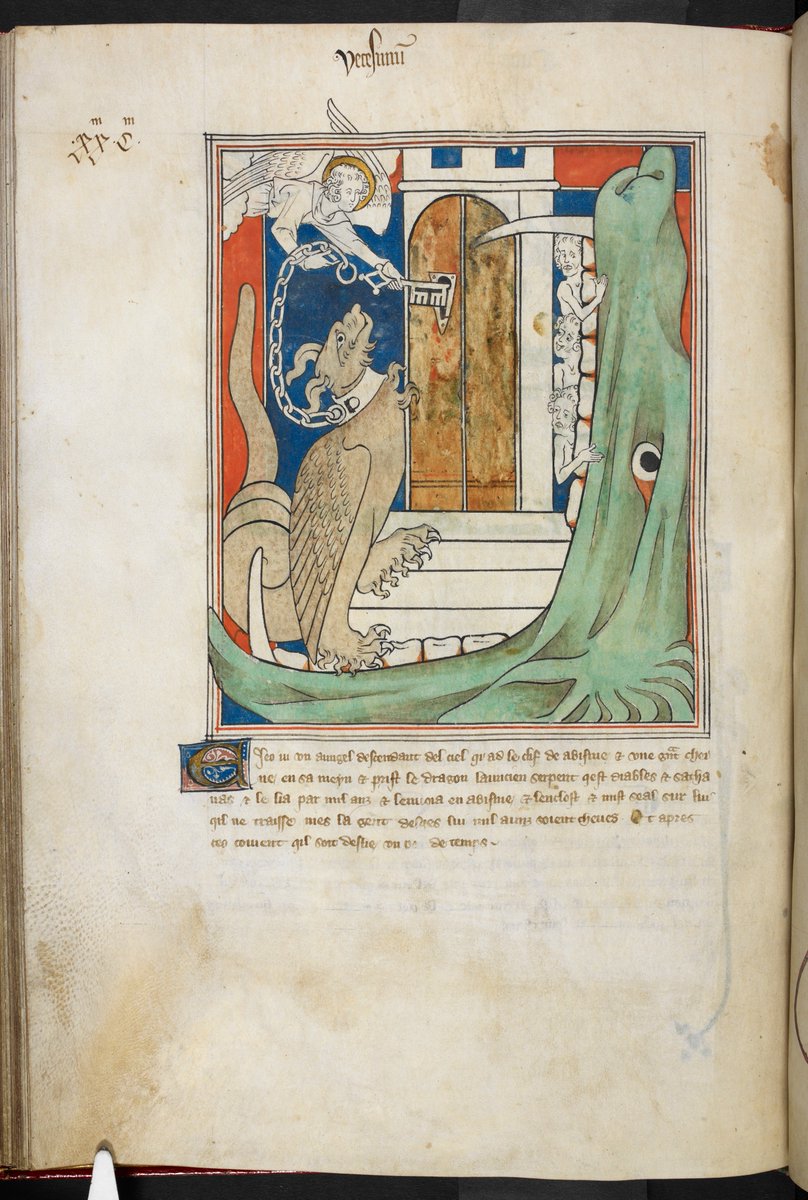 m m
E Jeo vi un aungel descendant del ciel qi ad le clif de abisme & une gnt chey
ne en sa meyn & prist le dragon launcien serpent qest diables & satha
nas & le lia par mil anz & lenvoia en abisme & lenclost & mist seal sur lui
qil ne traisse mes la gent desqes lui mil aunz soient cheues Et apres
ceo covient qil soit deslie un de temps